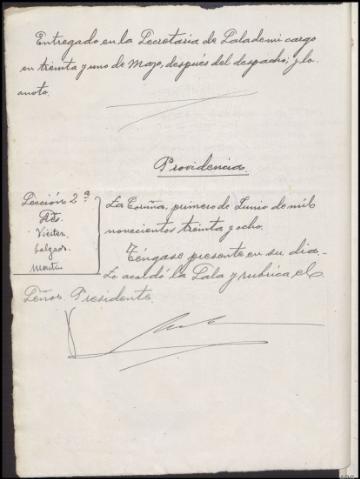 Entregado en la Secretaria de Sala de mi cargo
en treinta y uno de Mayo, despues del despacho; y lo
anoto.
Providencia
Sección 2ª
La Coruña, primero de Junio de mil
novecientos treinta y ocho.
Téngase presente en su dia.
Lo acordó la Sala y rubrica el
Señor Presidente.